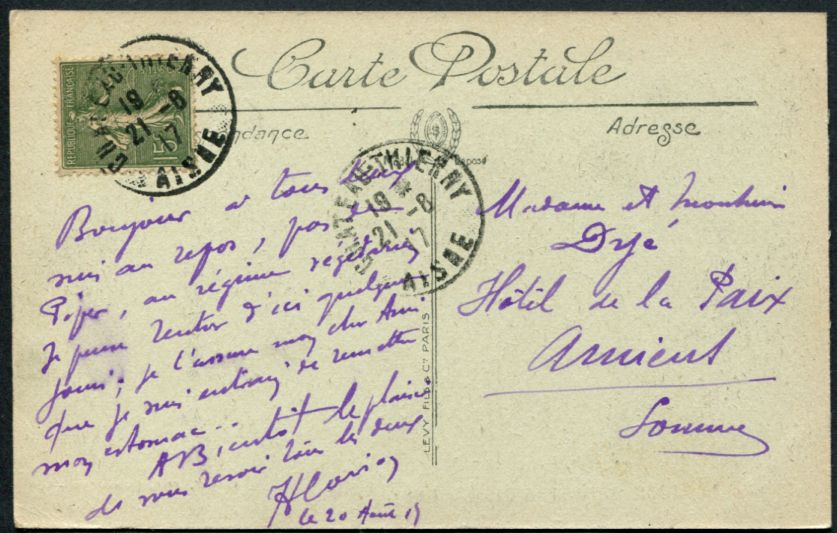 Carte Postale
RÉPUBLIQUE FRANÇAISE
15c
CHATEAU-THIERRY
19
21 -8
17
AISNE
CHATEAU-THIERRY
19
21 -8
17
AISNE
Adresse
Bonjour à tous deux
suis au repos, pas de
au régime
Je pense rentrer d'ici quelques
jours; je t'assure mon cher Ami
que je suis entrain de remettre
mon estomac..
A Bientôt le plaisir
de vous revoir tous les deux
le 20 Août
Madame et Monsieur
Dyé
Hôtel de la Paix
Amiens
Somme
LEVY FILS & Cie PARIS